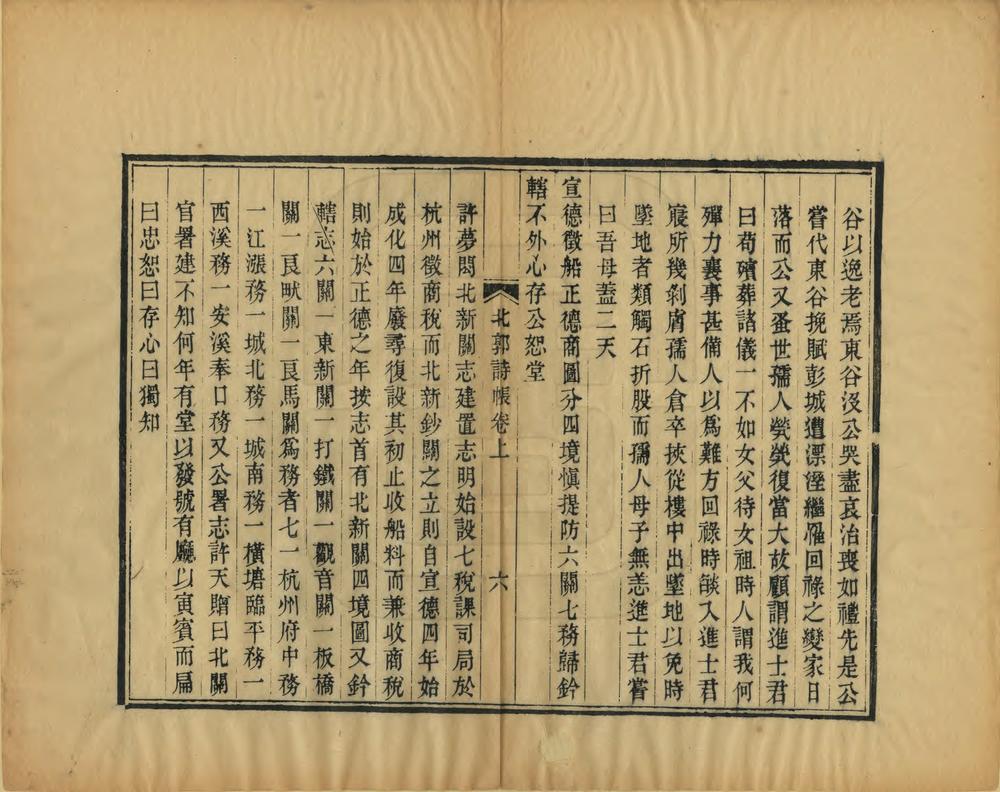 谷以逸老焉東谷沒公哭盡哀治喪如禮先是公
嘗代東谷挽賦彭城遭漂溼繼罹回祿之變家日
落而公又蚤世孺人煢煢復當大故顧謂進士君
曰苟殯葬諸儀一不如女父待女祖時人謂我何
殫力襄事甚備人以爲難方回祿時燄入進士君
寢所幾剝膚孺人倉卒挾從樓中出墜地以免時
墜地者類觸石折股而孺人母子無恙進士君嘗
曰吾母蓋二天
宣德徵船正德商圖分四境愼提防六關七務歸鈐
轄不外心存公恕堂
北郭詩帳卷上
六
許夢閎北新關志建置志明始設七稅課司局於
杭州徵商稅而北新鈔關之立則自宣德四年始
成化四年廢尋復設其初止收船料而兼收商稅
則始於正德之年按志首有北新關四境圖又鈐
轄志六關一東新關一打鐵關一觀音關一板橋
關一良畎關一良馬關爲務者七一杭州府中務
一江漲務一城北務一城南務一橫塘臨平務一
西溪務一安溪奉口務又公署志許天贈曰北關
官署建不知何年有堂以發號有廳以寅賓而扁
曰忠恕曰存心曰獨知